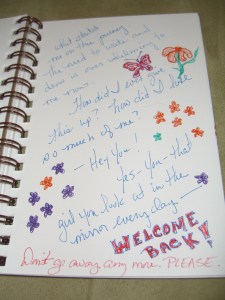 what started
me on this journey
the need to write and
draw is now
me now.
How did I ever give
this up? How did I lose
so much of me?
— Hey Yo —
Yes - You - that
girl you look at in the
mirror everyday —
WELCOME
BACK!
Don't go away any more. PLEASE.